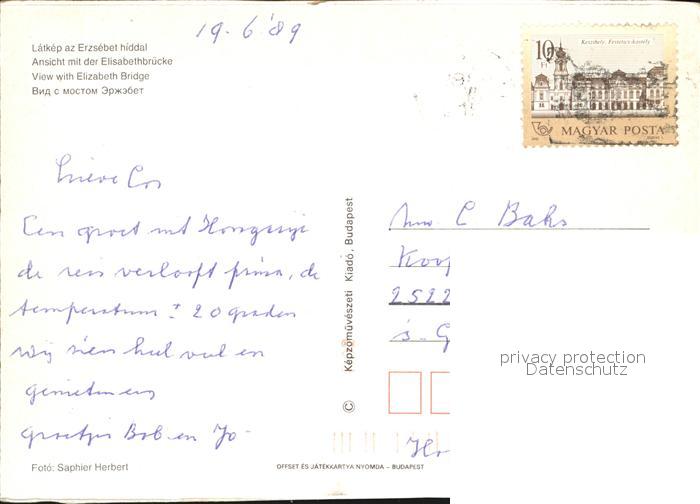 19.6.'89
Látkép az Erzsébet híddal
Ansicht mit der Elisabethbrücke
View with Elizabeth Bridge
Вид с мостом Эржэбет
Keszthely, Festetics-kastély
10 Ft
MAGYAR POSTA
Lieve Cor
Een groet uit Hongarije
de reis verloopt prima, de
temperatuur ± 20 graden
wij zien heel veel en
genieten
groetjes Bob en Jo
Mw C Baks
2522
© Képzőművészeti Kiadó, Budapest
privacy protection
Datenschutz
Fotó: Saphier Herbert
OFFSET ÉS JÁTÉKKÁRTYA NYOMDA – BUDAPEST